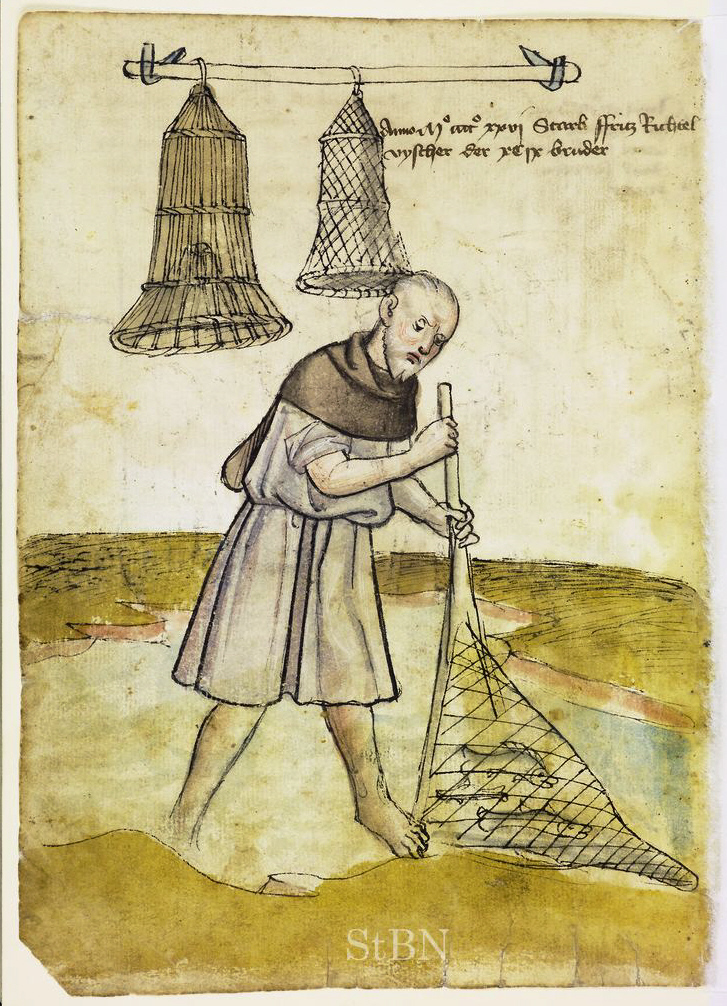 Anno M° cccc° xxvj Starb ffricz Richtel
vyscher der xCix bruder
StBN